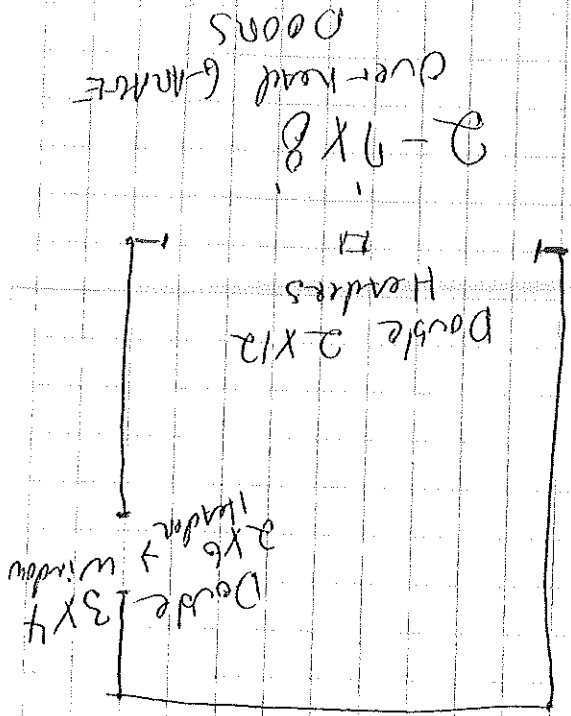 Double 3x4
2x6 → window
Header
Double 2x12
Headers
2 - 9' x 8'
Overhead GARAGE
DOORS